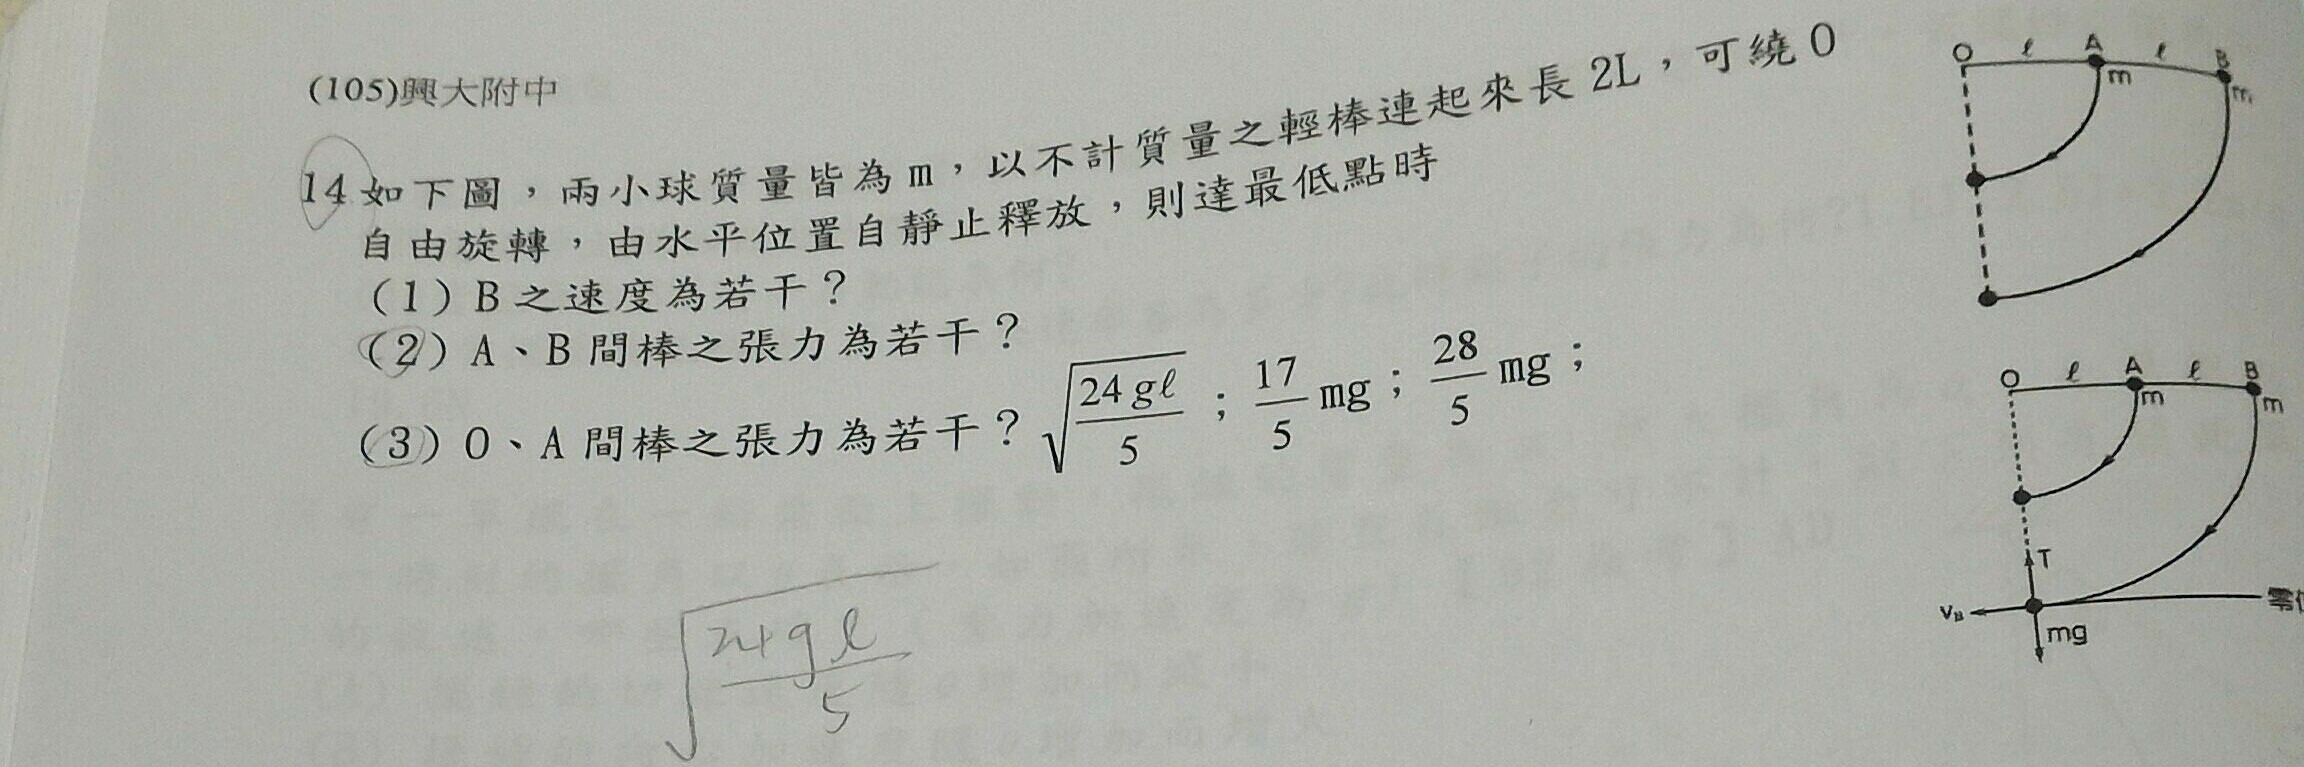 (105)興大附中
14 如下圖，兩小球質量皆為 m，以不計質量之輕棒連起來長 2L，可繞 O
自由旋轉，由水平位置自靜止釋放，則達最低點時
(1) B 之速度為若干？
(2) A、B 間棒之張力為若干？
(3) O、A 間棒之張力為若干？ √(24gℓ/5)；17/5 mg；28/5 mg；
√(24gℓ/5)
O ℓ A ℓ B
m m
O ℓ A ℓ B
m m
T
v_B 零
mg